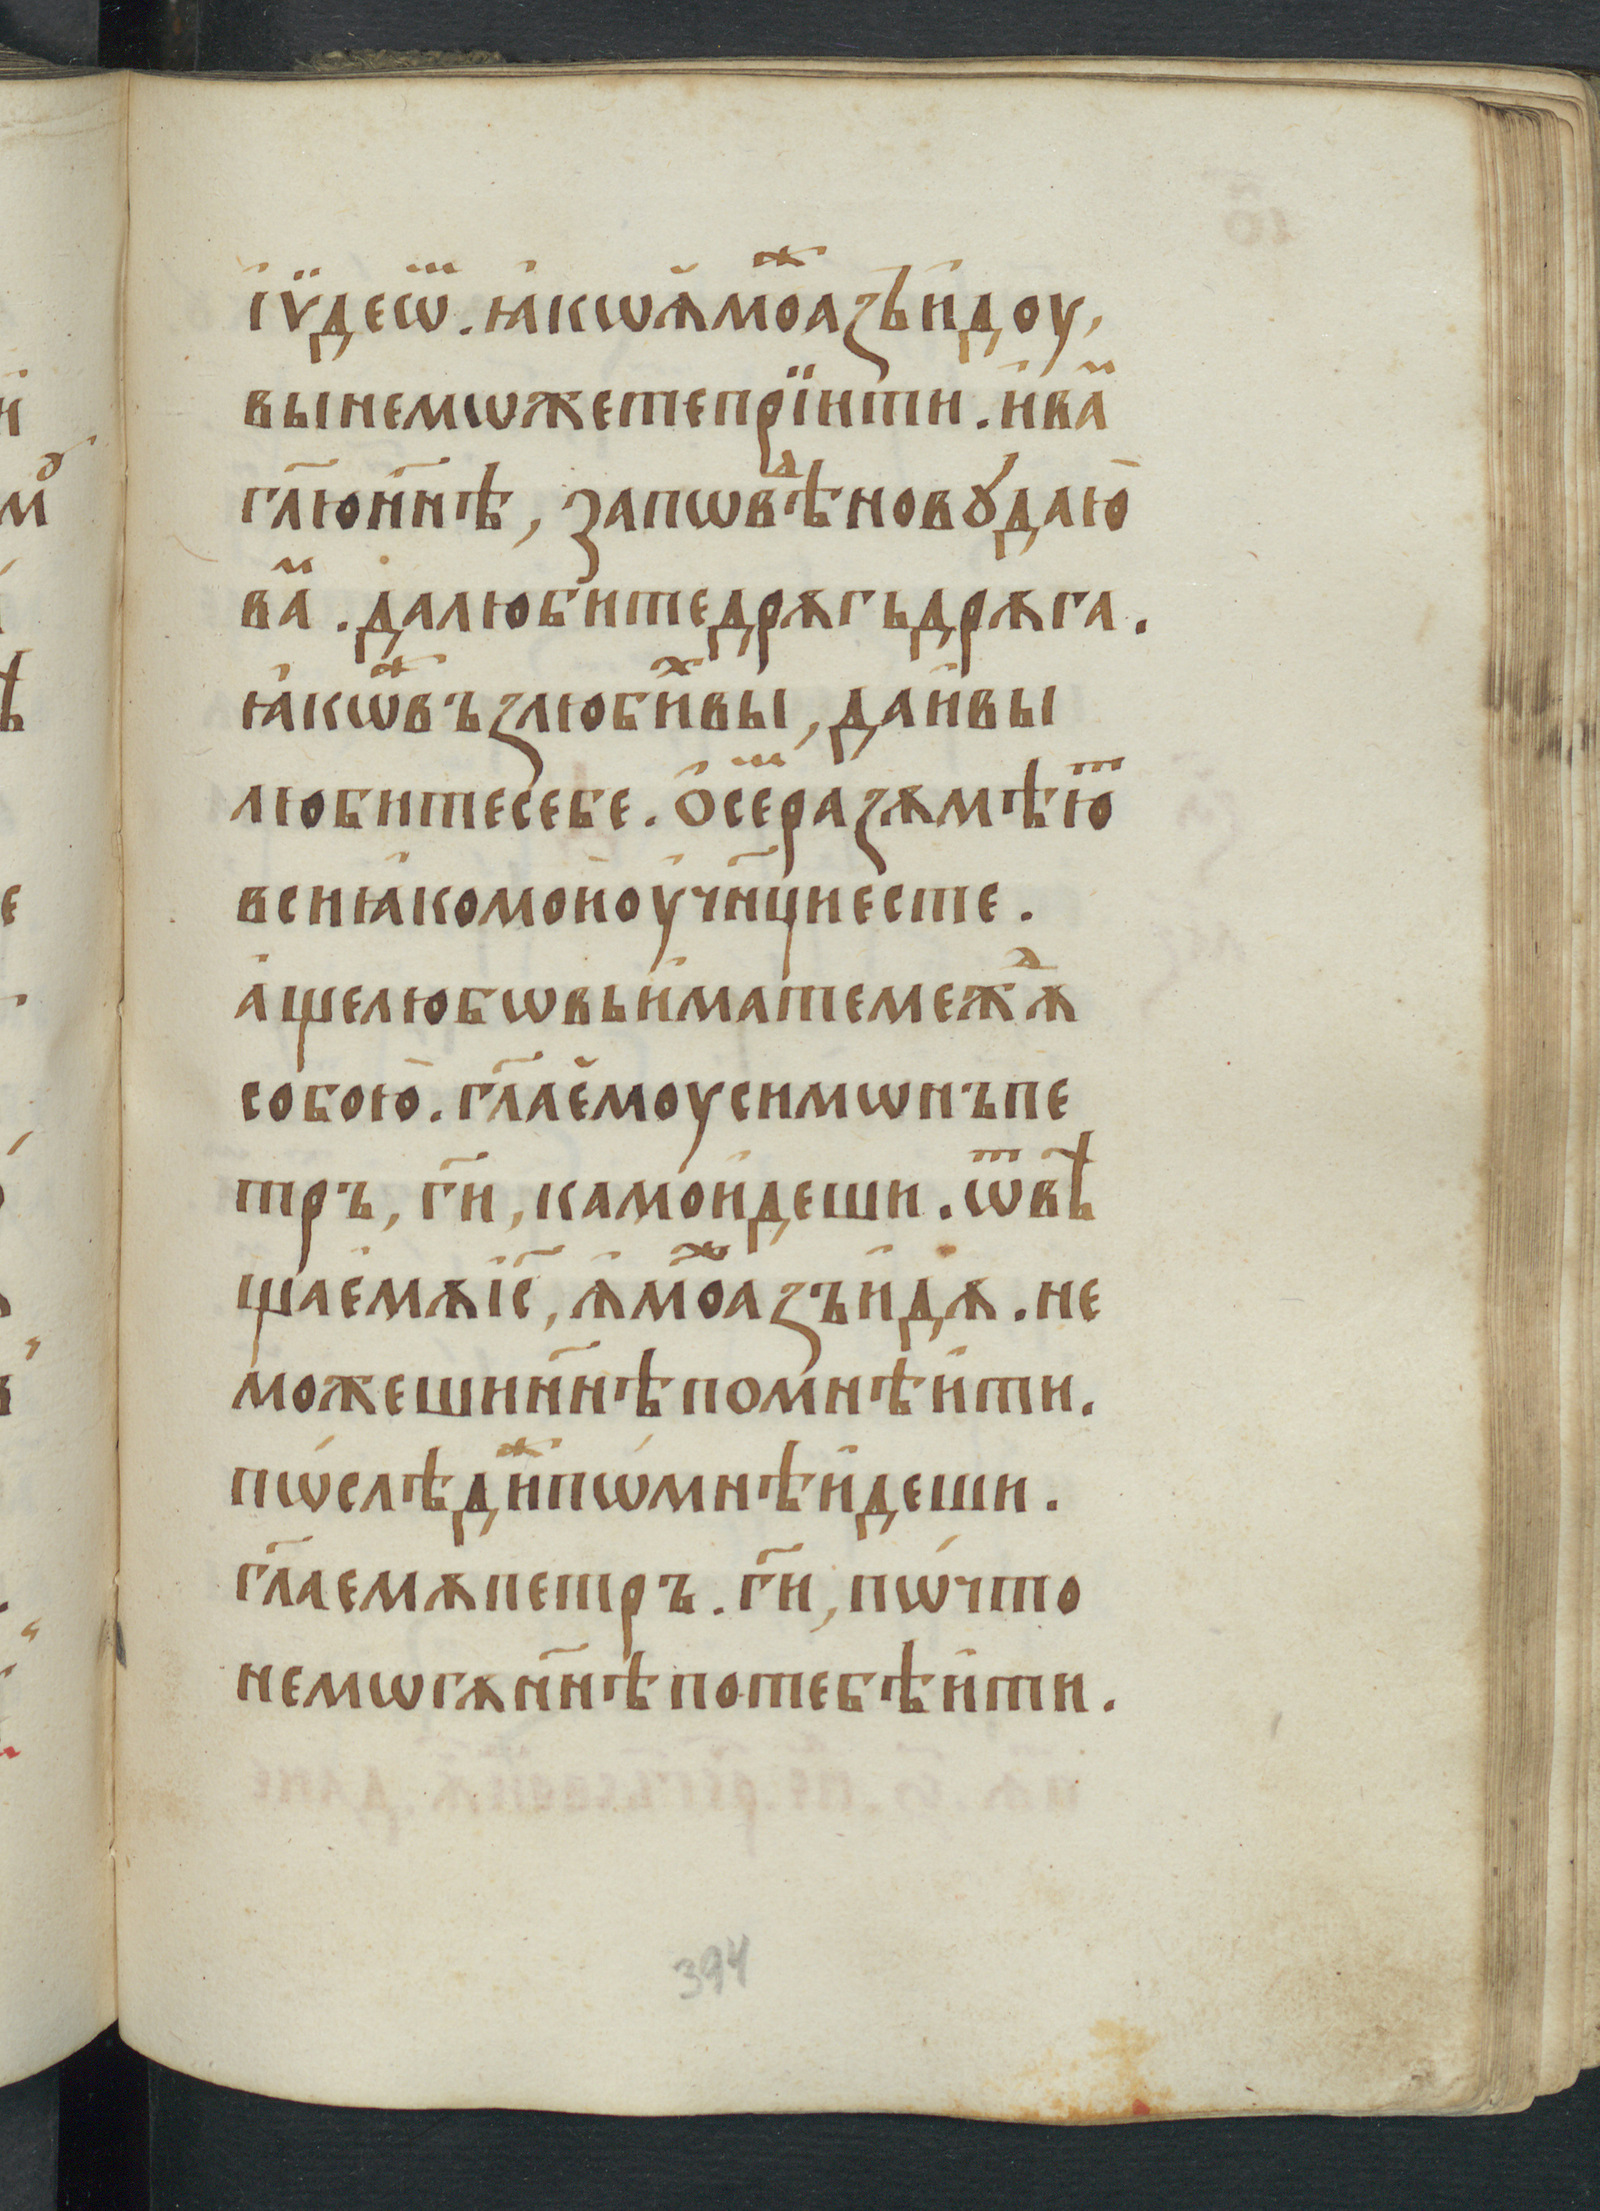 і҆ѵ҆деѡⷨ. ꙗ҆кѡѫ҆моⷤазъи҆доу,
вынемѡжетепрїити. и҆ваⷨ
гл҃юнн҃ѣ, запѡвѣⷣновꙋдаю҆
ваⷨ. далюбитедрѫгьдрѫга.
ꙗ҆кѡⷤвъзлюбиⷯвы, даи҆вы
любитесебе. ѡ҆сеⷨразѫмѣюⷮ
всиꙗ҆комои҆оу҆чн҃циесте.
а҆щелюбѡвьи҆матемежⷣѫ
собою҆. гл҃ае҆моусимѡнъпе
тръ, гн҃и, камои҆деши. ѿвѣ
щае҆мѫі҆с҃, ѫ҆моⷤазъи҆дѫ. не
можешинн҃ѣпомнѣи҆ти.
пѡ́слѣдиⷤпѡ́мнѣи҆деши.
гл҃аемѫпетръ. гн҃и, пѡ́что
немѡгѫнн҃ѣпотебѣи҆ти.
394